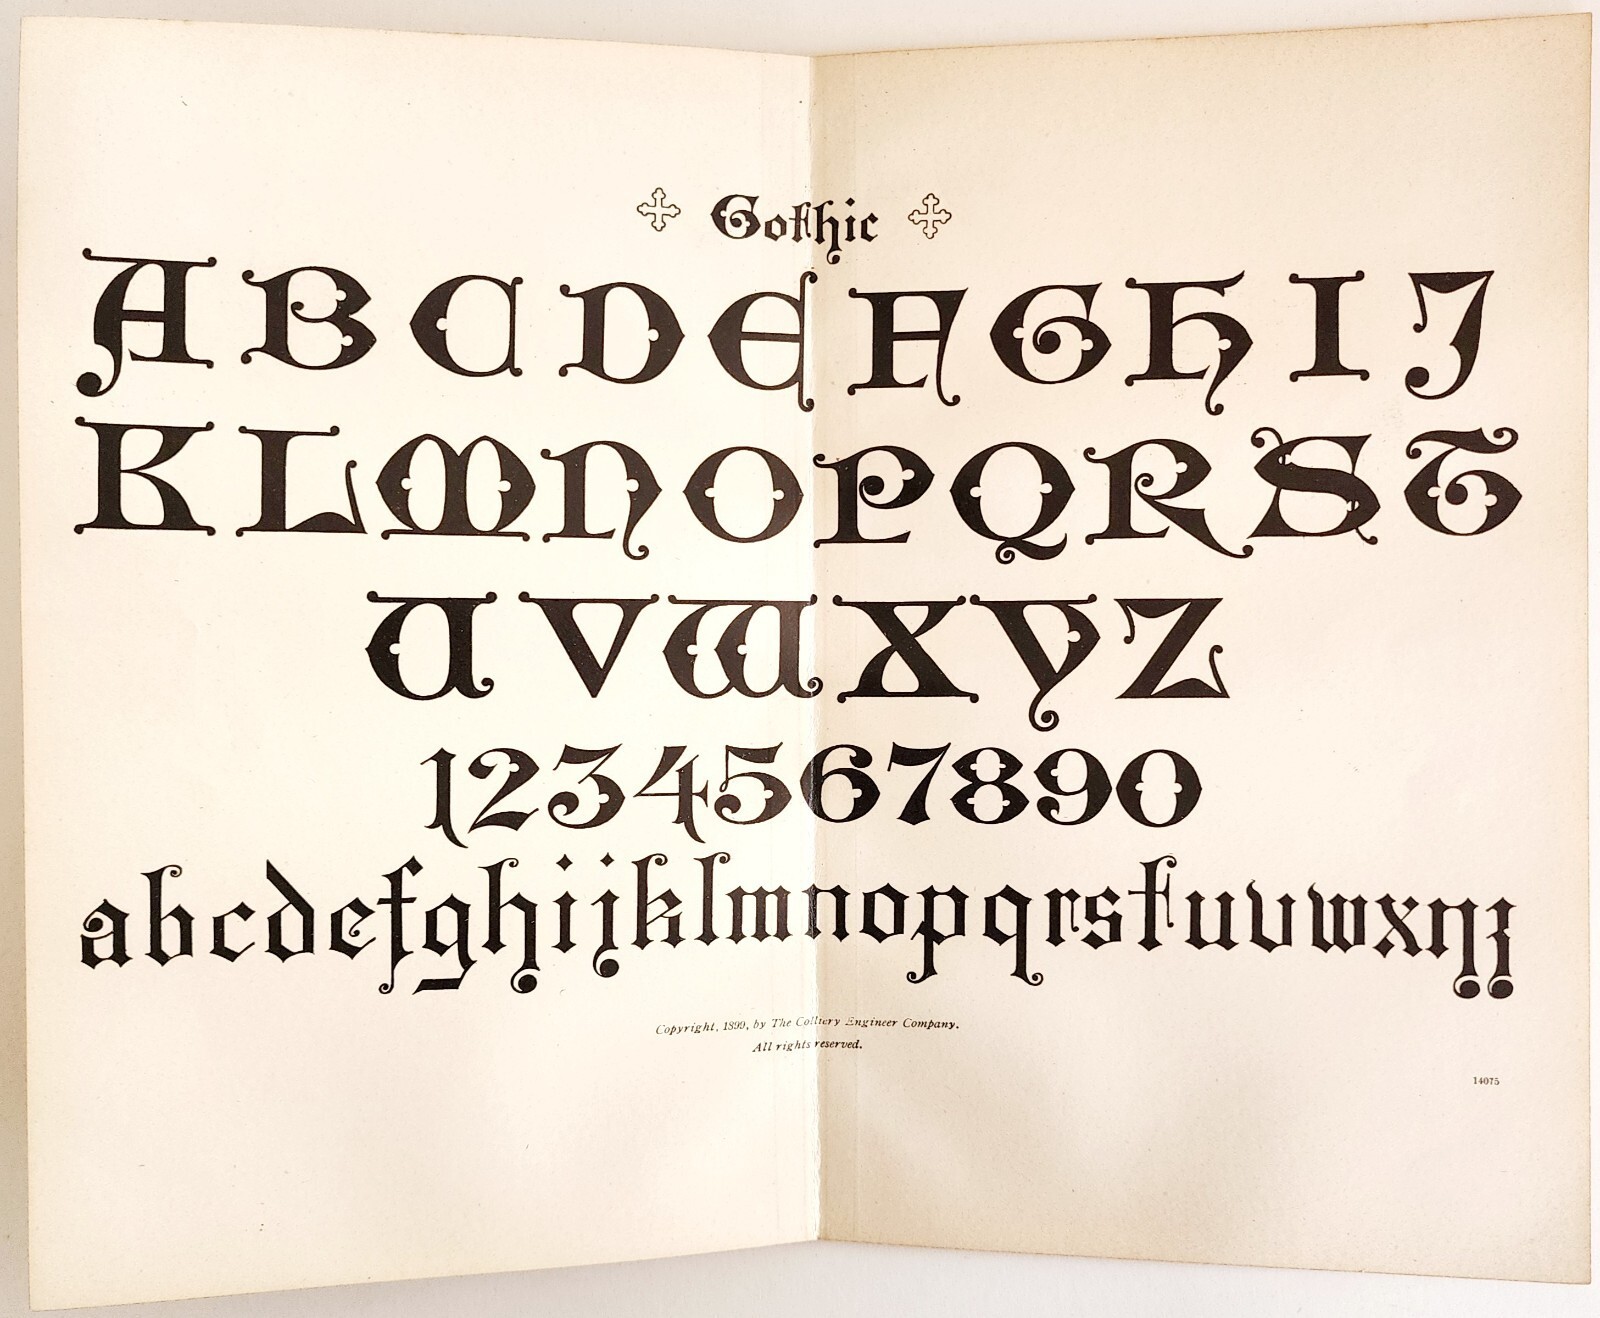 Gothic
ABCDEFGHIJ
KLMNOPQRST
UVWXYZ
1234567890
abcdefghijklmnopqrstuvwxyz
Copyright, 1899, by The Colliery Engineer Company.
All rights reserved.
14075